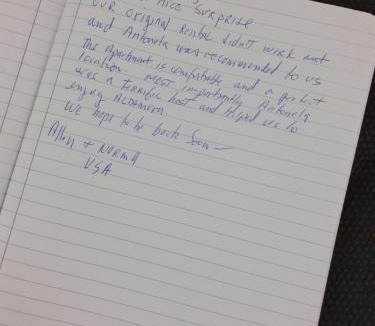 Nice Surprise
Our original Rental didn't work out
and Antonela was recommended to us
The Apartment is comfortable and a perfect
location. Most importantly Antonela
was a terrific host and helped us to
enjoy
We hope to be back Soon —
Allen + Norma
USA